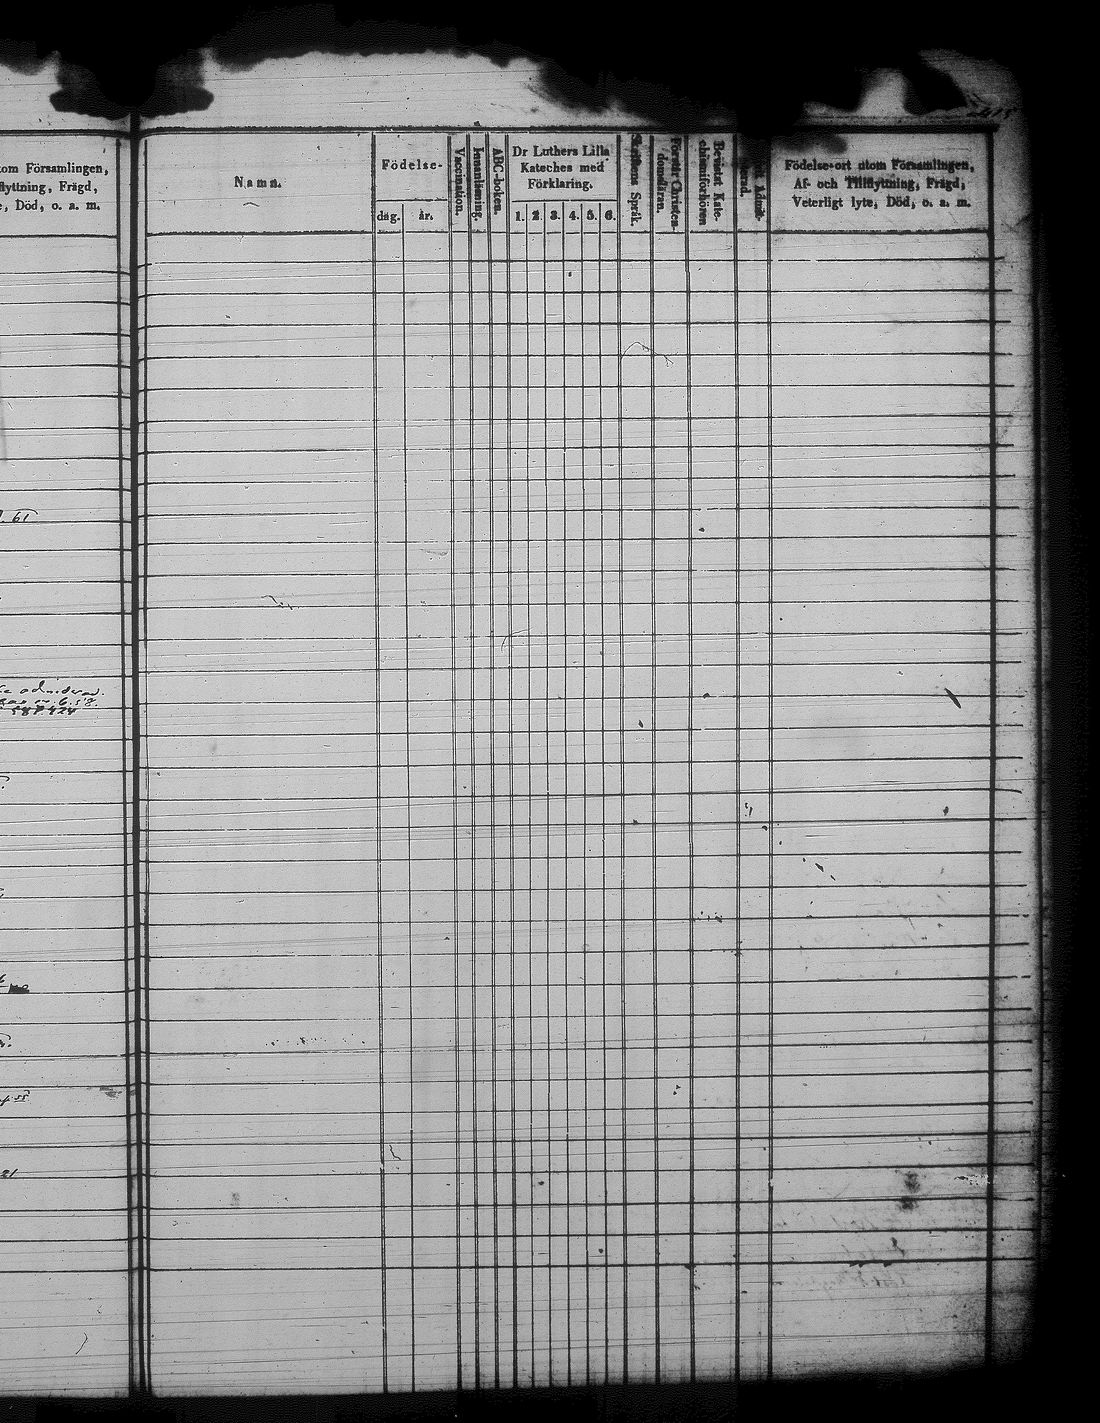 tom Församlingen,
flyttning, Frägd,
e, Död, o. a. m.
61
admiderad.
6. 58.
21
Namn.
Födelse-
dag.
år.
Vaccination.
Innanläsning.
ABC-boken.
Dr Luthers Lilla
Kateches med
Förklaring.
1. 2 3. 4. 5. 6.
Skriftens Språk.
Förstår Christen-
domsläran.
Bevistat Kate-
chismiförhören
Admit-
terad.
Födelse-ort utom Församlingen,
Af- och Tillflyttning, Frägd,
Veterligt lyte, Död, o. a. m.